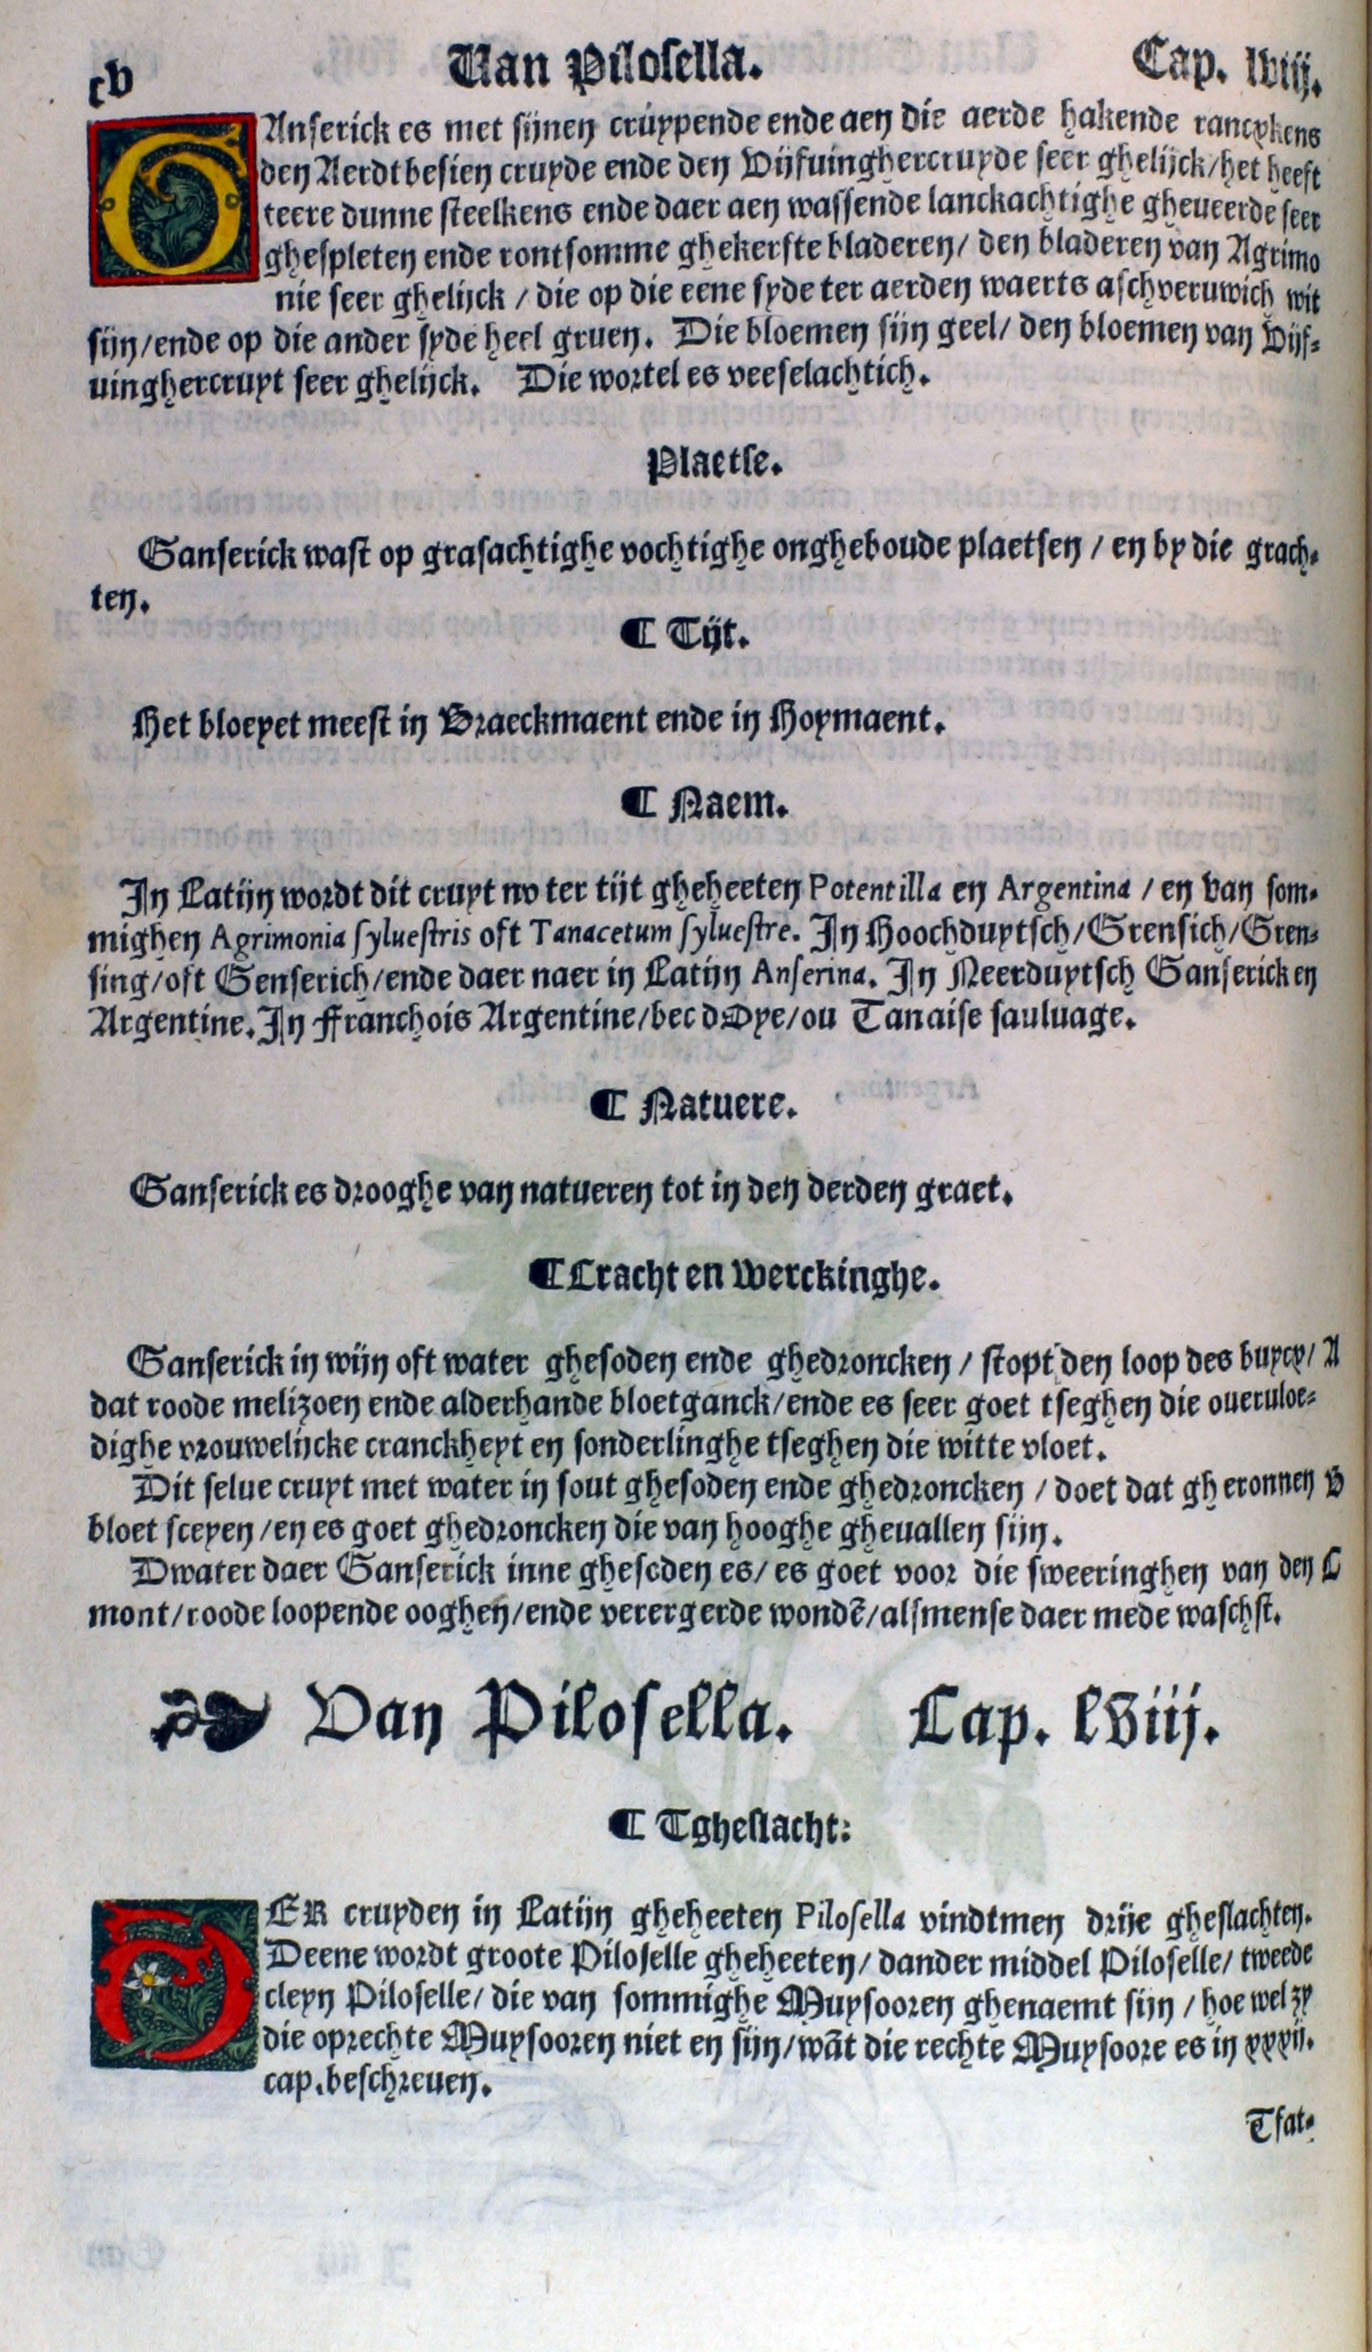 cv Van Pilosella. Cap. lviij.
GAnserick es met sijnen cruypende ende aen die aerde hakende rancxkens
den Aerdtbesien cruyde ende den Vijfuinghercruyde seer ghelijck/het heeft
teere dunne steelkens ende daer aen wassende lanckachtighe gheueerde seer
ghespleten ende rontsomme ghekerfte bladeren/ den bladeren van Agrimo
nie seer ghelijck / die op die eene syde ter aerden waerts aschveruwich wit
sijn/ende op die ander syde heel gruen. Die bloemen sijn geel/ den bloemen van Vijf-
uinghercruyt seer ghelijck. Die wortel es veeselachtich.
Plaetse.
Ganserick wast op grasachtighe vochtighe ongheboude plaetsen / en by die grach-
ten.
¶ Tijt.
Het bloeyet meest in Braeckmaent ende in Hoymaent.
¶ Naem.
In Latijn wordt dit cruyt nv ter tijt gheheeten Potentilla en Argentina / en van som-
mighen Agrimonia syluestris oft Tanacetum syluestre. In Hoochduytsch/Grensich/Gren-
sing/oft Genserich/ende daer naer in Latijn Anserina. In Neerduytsch Ganserick en
Argentine. In Franchois Argentine/bec dOye/ou Tanaise sauluage.
¶ Natuere.
Ganserick es drooghe van natueren tot in den derden graet.
¶ Cracht en Werckinghe.
Ganserick in wijn oft water ghesoden ende ghedroncken / stopt den loop des buycx/ A
dat roode melizoen ende alderhande bloetganck/ende es seer goet tseghen die oueruloe-
dighe vrouwelijcke cranckheyt en sonderlinghe tseghen die witte vloet.
Dit selue cruyt met water in sout ghesoden ende ghedroncken / doet dat gheronnen B
bloet sceyen/en es goet ghedroncken die van hooghe gheuallen sijn.
Dwater daer Ganserick inne ghesoden es/ es goet voor die sweeringhen van den C
mont/roode loopende ooghen/ende verergerde wondē/alsmense daer mede waschst.
Van Pilosella. Cap. lviij.
¶ Tgheslacht:
DER cruyden in Latijn gheheeten Pilosella vindtmen drije gheslachten.
Deene wordt groote Piloselle gheheeten/ dander middel Piloselle/ tweede
cleyn Piloselle/ die van sommighe Muysooren ghenaemt sijn / hoe wel zy
die oprechte Muysooren niet en sijn/wāt die rechte Muysoore es in xxxij.
cap. beschreuen.
Tfat-